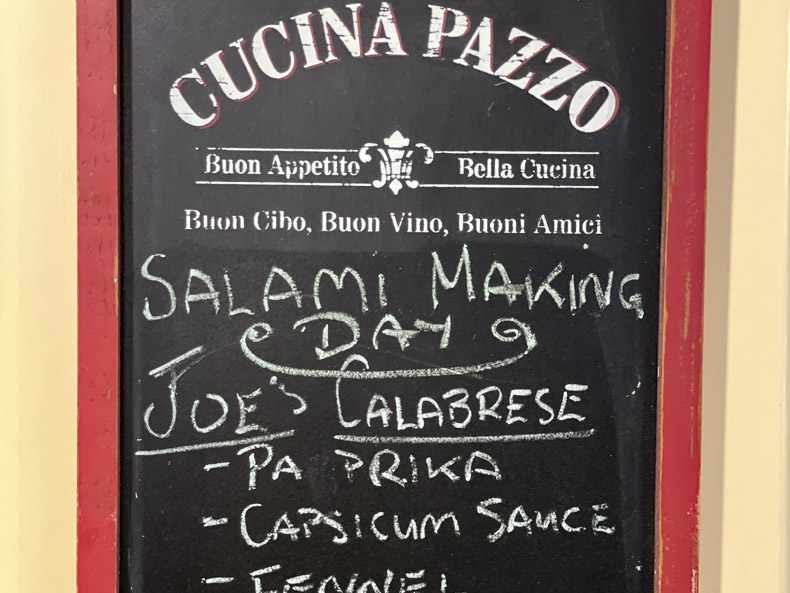 CUCINA PAZZO
Buon Appetito Bella Cucina
Buon Cibo, Buon Vino, Buoni Amici
SALAMI MAKING
DAY
JOE'S CALABRESE
- PAPRIKA
- CAPSICUM SAUCE
- FENNEL